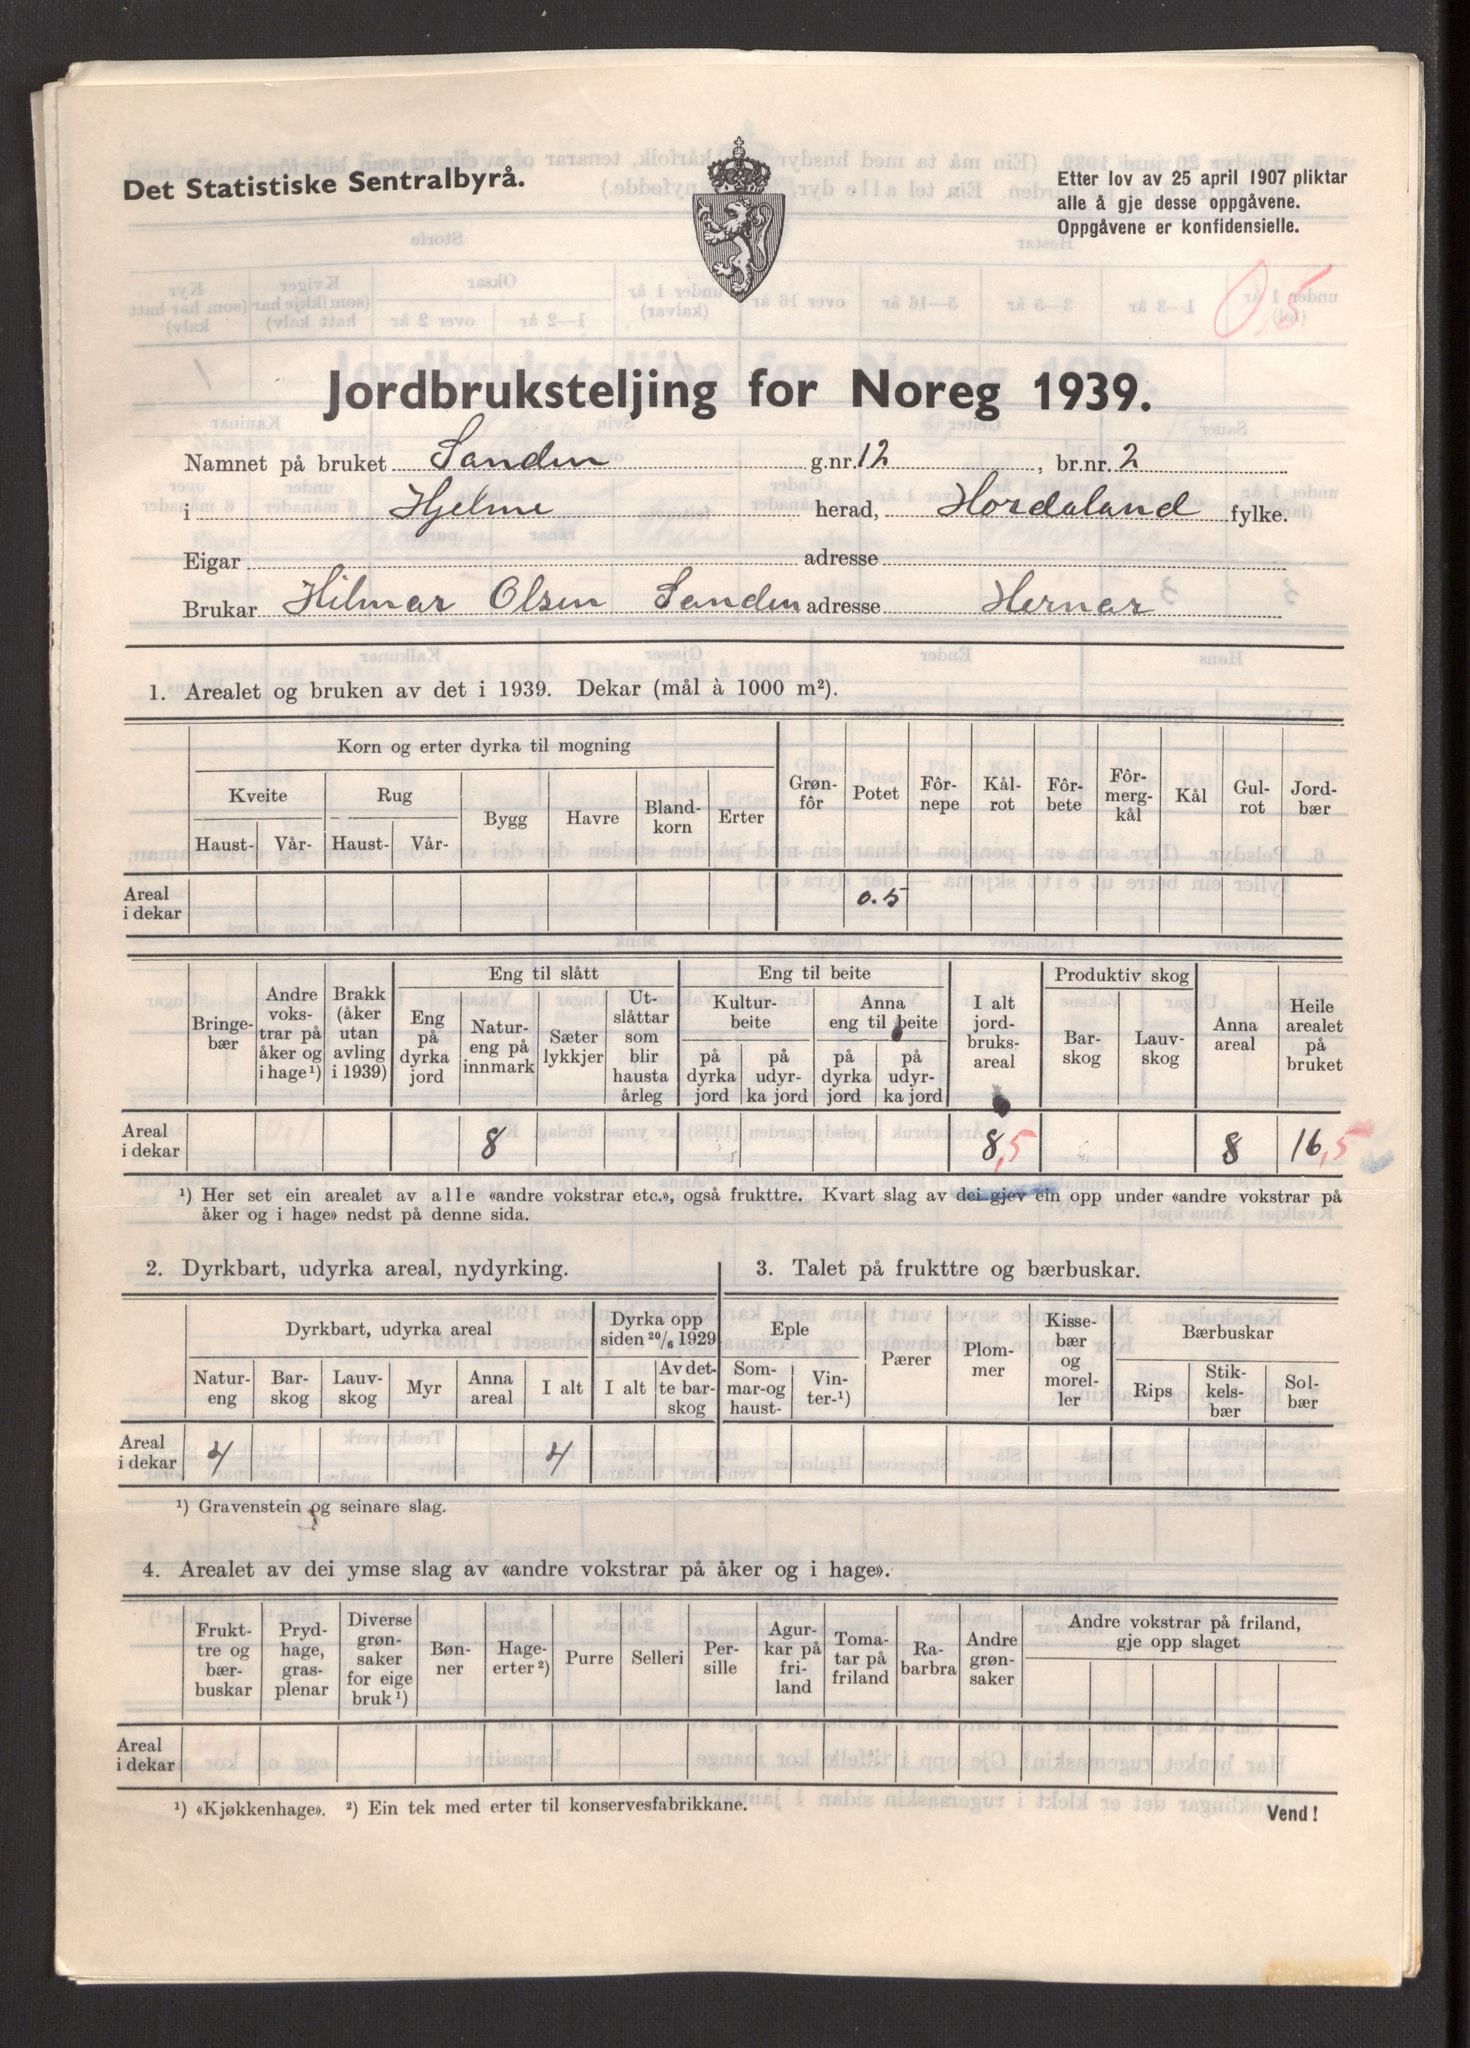 Det Statistiske Sentralbyrå.
Etter lov av 25 april 1907 pliktar
alle å gje desse oppgåvene.
Oppgåvene er konfidensielle.
0,5
Jordbruksteljing for Noreg 1939.
Namnet på bruket Sanden g.nr. 12, br.nr. 2
i Hjelme herad, Hordaland fylke.
Eigar adresse
Brukar Hilmar Olsen Sanden adresse Hernar
1. Arealet og bruken av det i 1939. Dekar (mål à 1000 m²).
Korn og erter dyrka til mogning
Kveite Rug Bygg Havre Bland-korn Erter Grøn-fôr Potet Fôr-nepe Kål-rot Fôr-bete Fôr-mergkål Kål Gul-rot Jord-bær
Haust- Vår- Haust- Vår-
Areal i dekar 0.5
Bringe-bær Andre vokstrar på åker og i hage¹) Brakk (åker utan avling i 1939) Eng til slått Eng til beite I alt jordbruks-areal Produktiv skog Anna areal Heile arealet på bruket
Eng på dyrka jord Natureng på innmark Sæter lykkjer Utslåttar som blir hausta årleg Kultur-beite Anna eng til beite Bar-skog Lauv-skog
på dyrka jord på udyrka jord på dyrka jord på udyrka jord
Areal i dekar 8 8,5 8 16,5
¹) Her set ein arealet av alle «andre vokstrar etc.», også frukttre. Kvart slag av dei gjev ein opp under «andre vokstrar på
åker og i hage» nedst på denne sida.
2. Dyrkbart, udyrka areal, nydyrking.
3. Talet på frukttre og bærbuskar.
Dyrkbart, udyrka areal Dyrka opp siden 20/6 1929 Eple Pærer Plommer Kissebær og moreller Bærbuskar
Natureng Bar-skog Lauv-skog Myr Anna areal I alt I alt Av dette barskog Sommar-og haust- Vinter-¹) Rips Stikkelsbær Sol-bær
Areal i dekar 4 4
¹) Gravenstein og seinare slag.
4. Arealet av dei ymse slag av «andre vokstrar på åker og i hage».
Frukttre og bærbuskar Prydhage, grasplenar Diverse grønsaker for eige bruk¹) Bønner Hageerter²) Purre Selleri Persille Agurkar på friland Tomatar på friland Rabarbra Andre grønsaker Andre vokstrar på friland, gje opp slaget
Areal i dekar
¹) «Kjøkkenhage». ²) Ein tek med erter til konservesfabrikkane.
Vend!